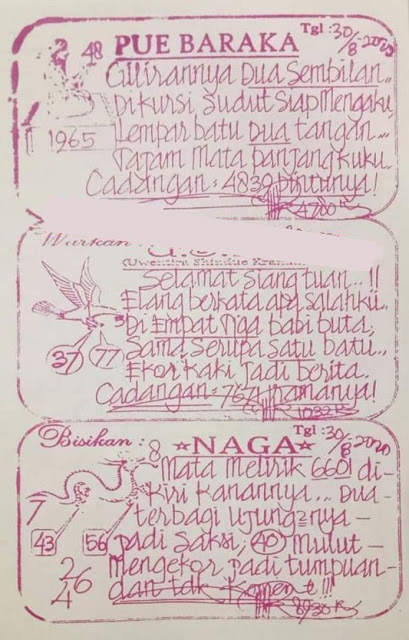 2 48 PUE BARAKA Tgl : 30/8-2020
Gilirannya Dua Sembilan..
Di kursi sudut siap mengaku
1965 Lempar batu Dua tangan...
Tajam mata panjang kuku.
Cadangan = 4839 pintunya!
4200
Warkan :
(Uwentira Shindue
Selamat siang tuan..!!
Elang berkata apa salahku..
Di Empat tiga babi buta,
37 77 Sama serupa satu batu..
Ekor kaki jadi berita.
Cadangan = 7674 ramanya!
1032
Bisikan : 8 NAGA Tgl : 30/8-2020
Mata melirik 6601 di-
kiri kanannya... Dua-
7 terbagi ujung2nya -
43 56 jadi saksi; 40 Mulut -
26 Mengekor jadi tumpuan-
4 dan tdk Koment !!!
8930